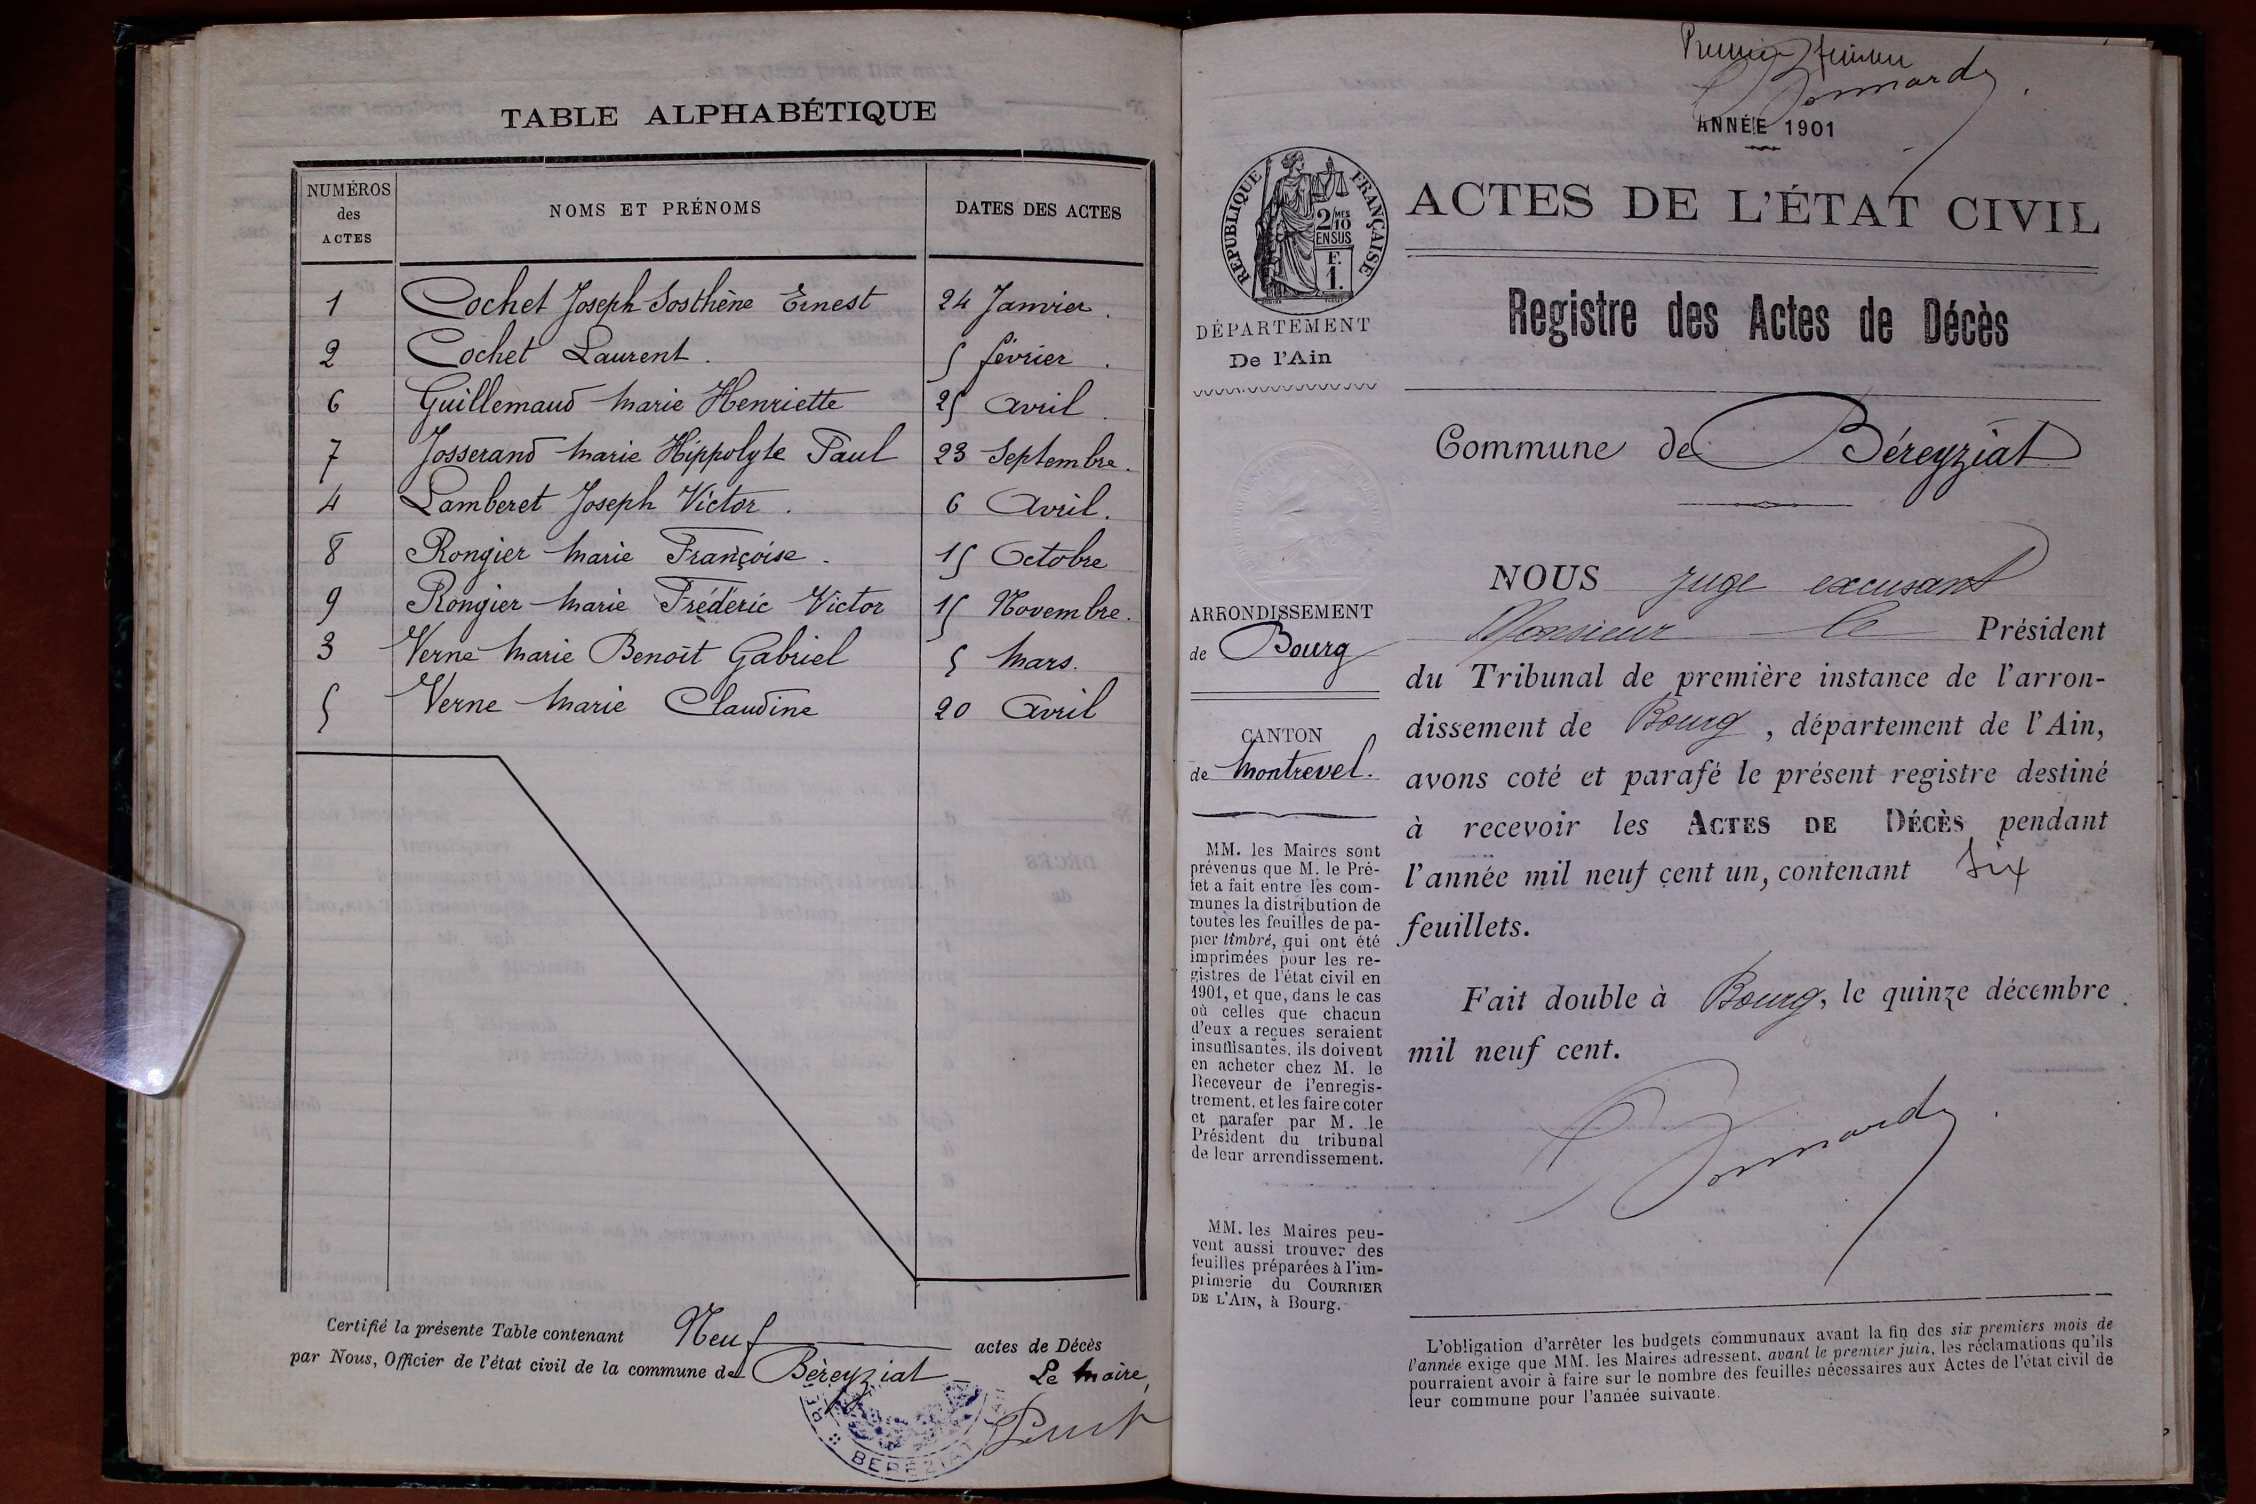 TABLE ALPHABÉTIQUE
NUMÉROS des ACTES
NOMS ET PRÉNOMS
DATES DES ACTES
1 Cochet Joseph Sosthène Ernest 24 Janvier.
2 Cochet Laurent. 5 février.
6 Guillemaud Marie Henriette 25 Avril.
7 Josserand Marie Hippolyte Paul 23 Septembre.
4 Lamberet Joseph Victor. 6 Avril.
8 Rongier Marie Françoise. 15 Octobre
9 Rongier Marie Fréderic Victor 15 Novembre.
3 Verne Marie Benoît Gabriel 5 Mars.
5 Verne Marie Claudine 20 Avril
Certifié la présente Table contenant Neuf actes de Décès
par Nous, Officier de l'état civil de la commune de Béreyziat
Le Maire,
BEREZIAT
Premier feuillet
Bonnard
ANNÉE 1901
RÉPUBLIQUE FRANÇAISE
2/10 MES
EN SUS
F.
1.
ACTES DE L'ÉTAT CIVIL
Registre des Actes de Décès
DÉPARTEMENT
De l'Ain
Commune de Béreyziat
ARRONDISSEMENT
de Bourg
CANTON
de Montrevel.
MM. les Maires sont
prévenus que M. le Pré-
fet a fait entre les com-
munes la distribution de
toutes les feuilles de pa-
pier timbré, qui ont été
imprimées pour les re-
gistres de l'état civil en
1901, et que, dans le cas
où celles que chacun
d'eux a reçues seraient
insuffisantes, ils doivent
en acheter chez M. le
Receveur de l'enregis-
trement, et les faire coter
et parafer par M. le
Président du tribunal
de leur arrondissement.
MM. les Maires peu-
vent aussi trouver des
feuilles préparées à l'im-
primerie du COURRIER
DE L'AIN, à Bourg.
NOUS juge excusant
Monsieur le Président
du Tribunal de première instance de l'arron-
dissement de Bourg, département de l'Ain,
avons coté et parafé le présent registre destiné
à recevoir les ACTES DE DÉCÈS pendant
l'année mil neuf cent un, contenant six
feuillets.
Fait double à Bourg, le quinze décembre
mil neuf cent.
Bonnard
L'obligation d'arrêter les budgets communaux avant la fin des six premiers mois de
l'année exige que MM. les Maires adressent, avant le premier juin, les réclamations qu'ils
pourraient avoir à faire sur le nombre des feuilles nécessaires aux Actes de l'état civil de
leur commune pour l'année suivante.